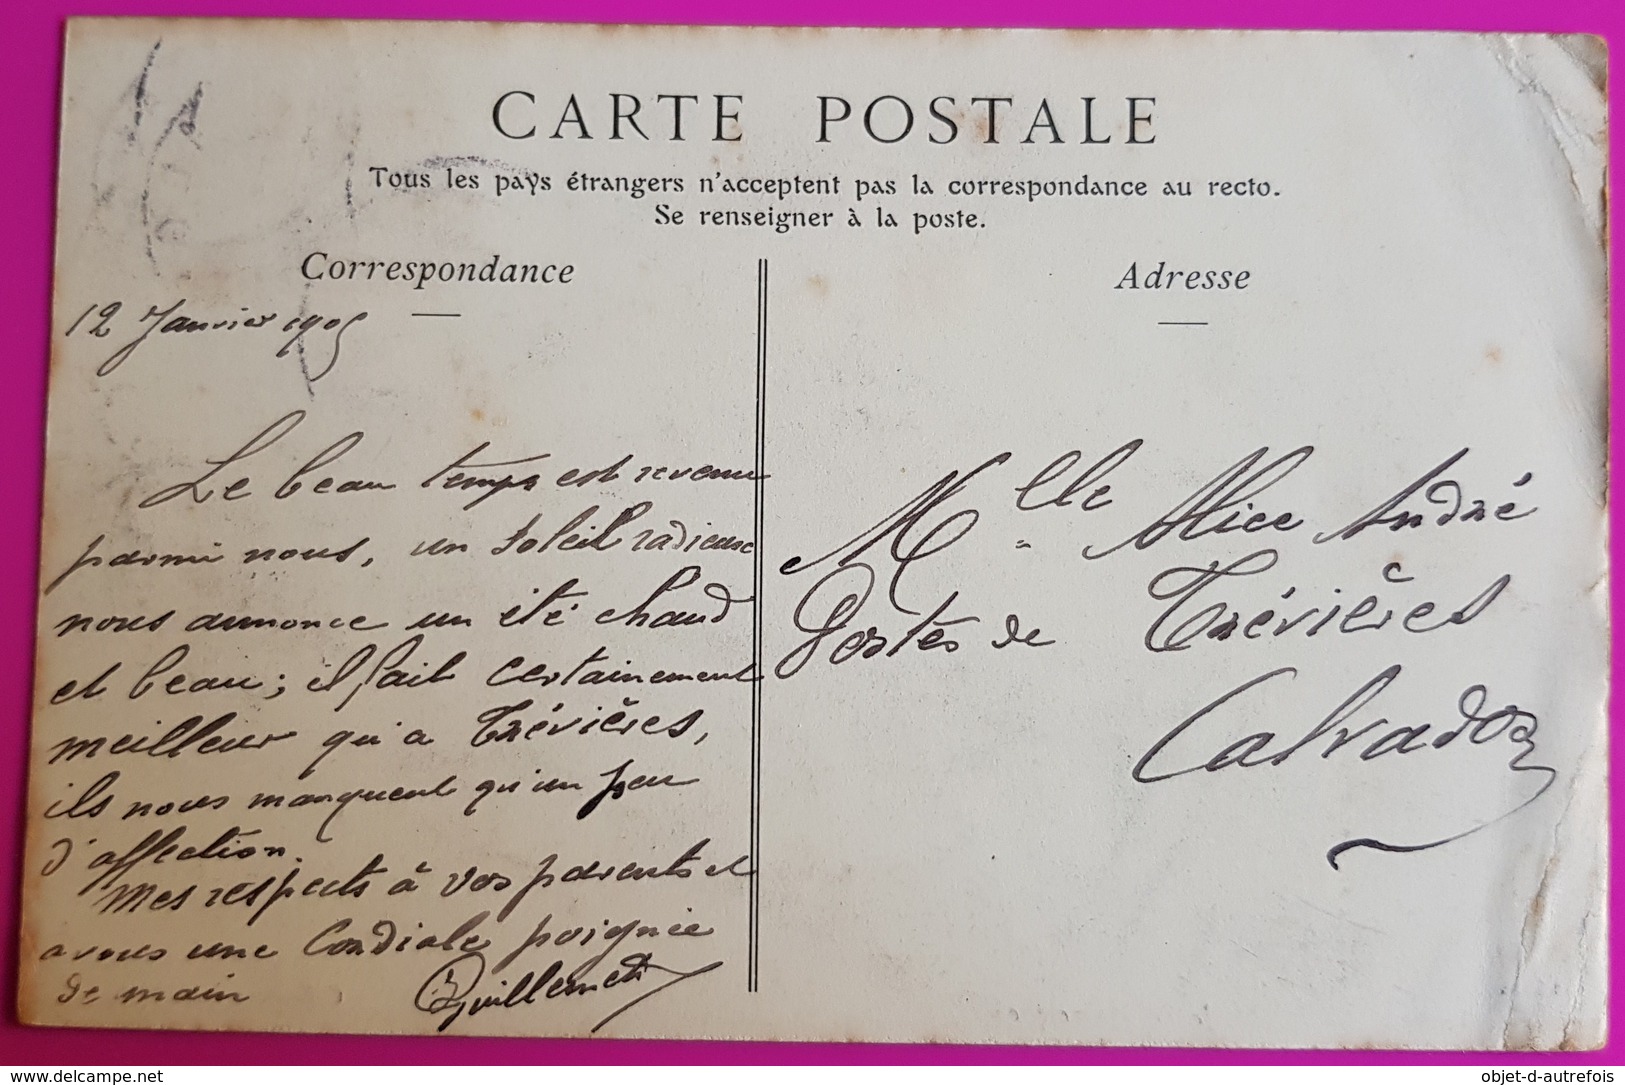 CARTE POSTALE
Tous les pays étrangers n'acceptent pas la correspondance au recto.
Se renseigner à la poste.
Correspondance
12 Janvier 1905
Le beau temps est revenu
parmi nous, un soleil radieux
nous annonce un été chaud
et beau; il fait certainement
meilleur qu'a Trévières,
ils nous manquent qu'un peu
d'affection.
Mes respects à vos parents et
a vous une Cordiale poignée
de main
Guillemet
Adresse
Mlle Alice André
Postes de Trévières
Calvados
delcampe.net
objet-d-autrefois